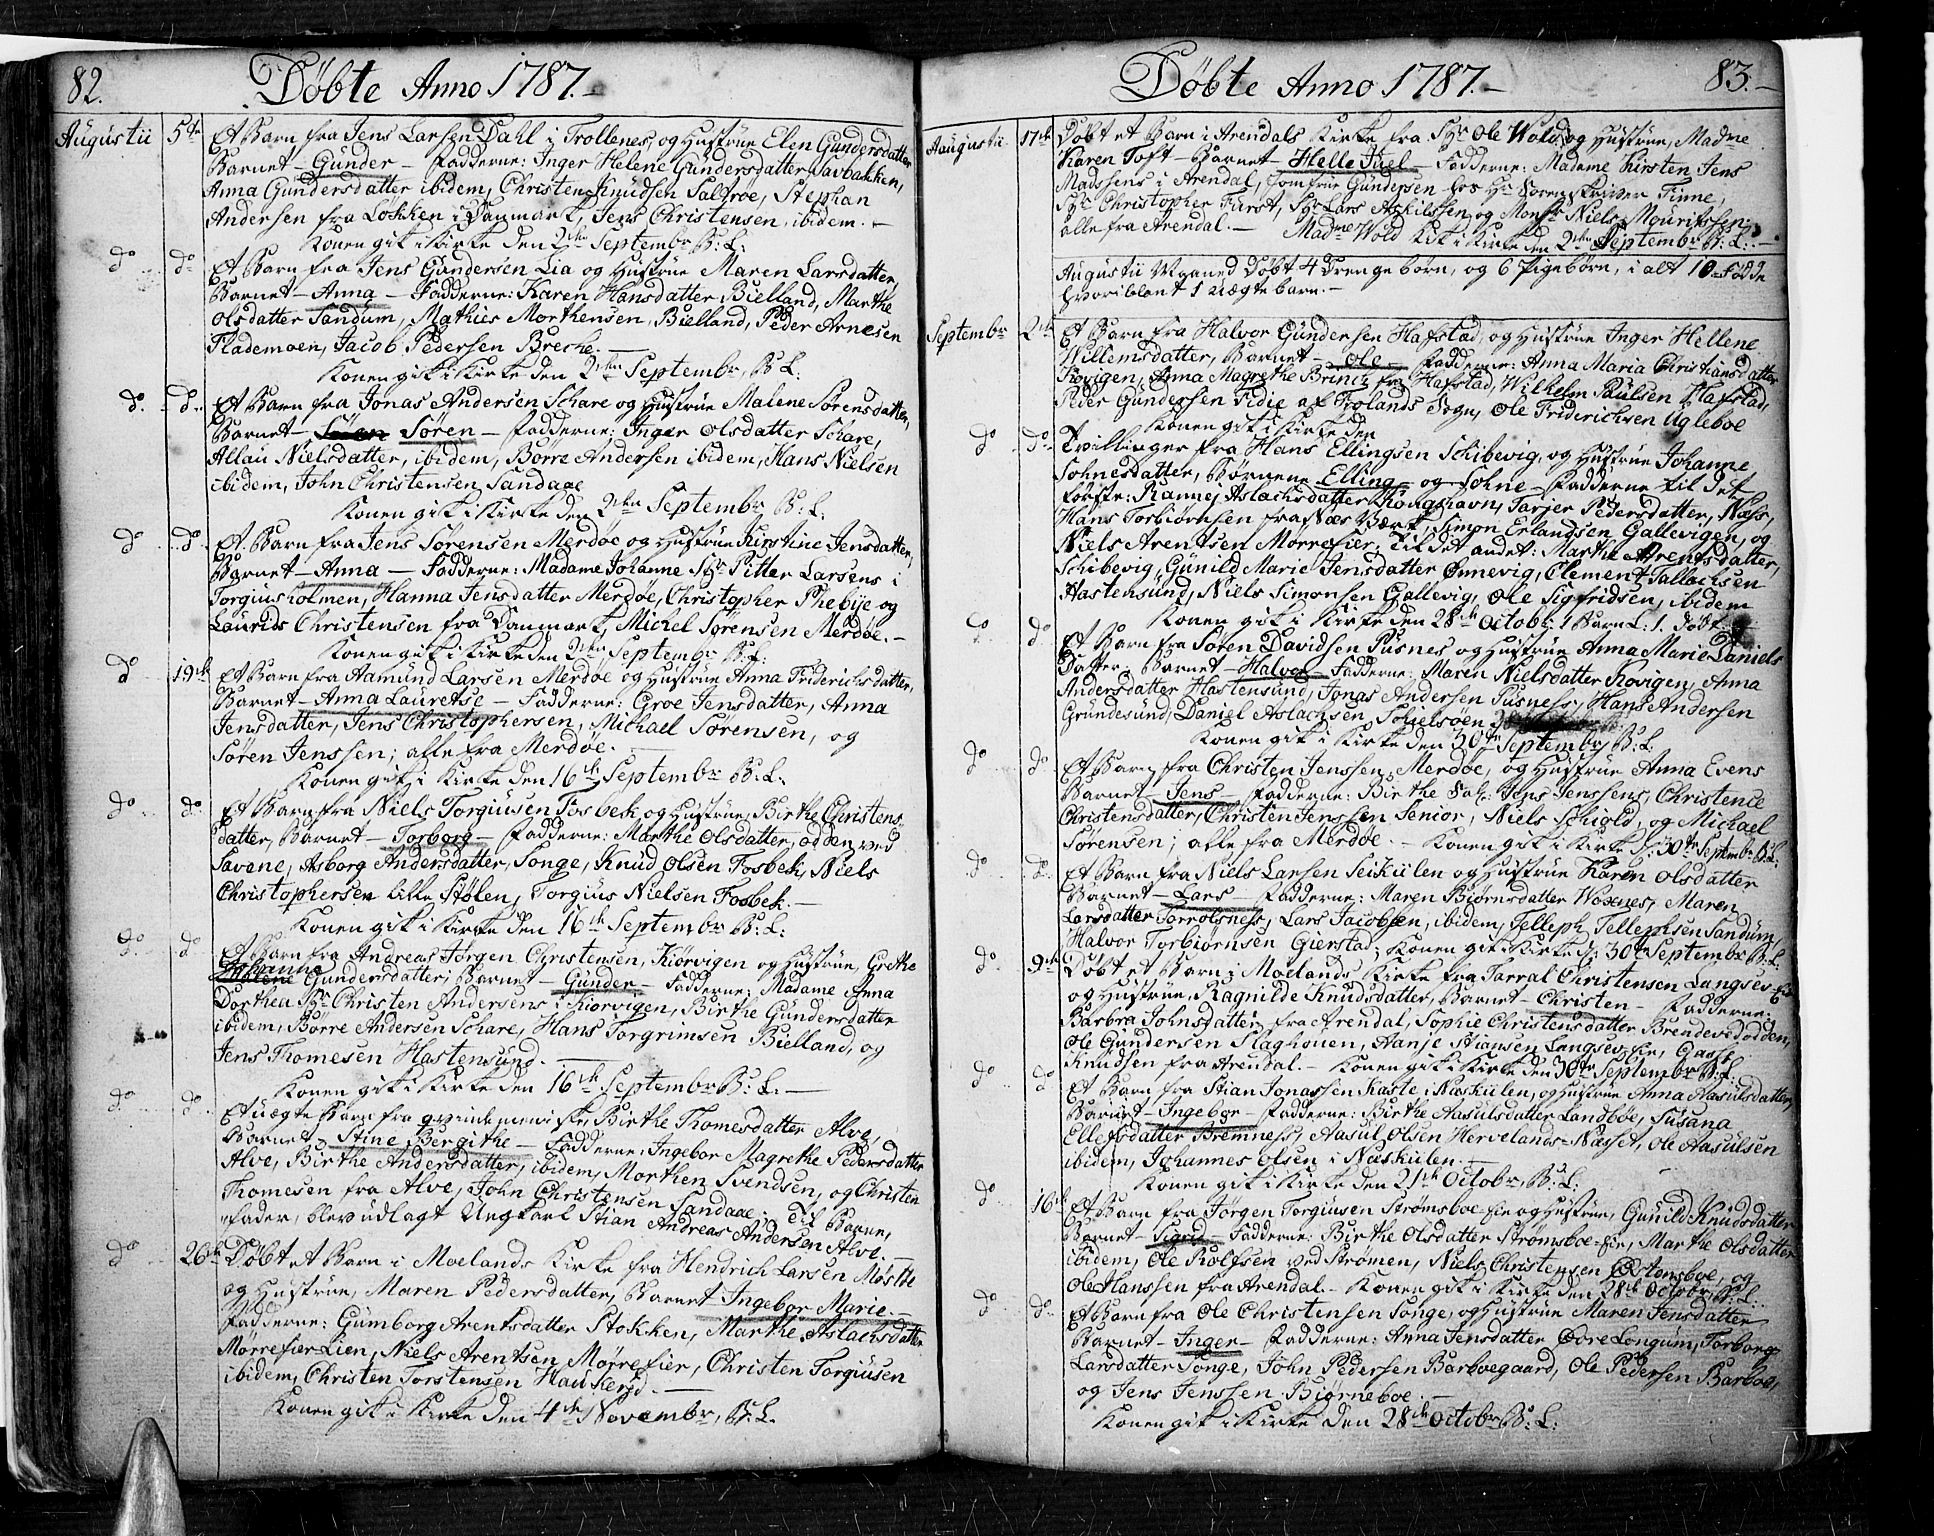 82.
Døbte Anno 1787.
Augustii 5te Et Barn fra Jens Larsen Dahl i Trollenes, og Hustrue Elen Gundersdatter
Barnet – Gunder – Fadderne: Inger Helene Gundersdatter Savbakken,
Anna Gundersdatter ibidem, Christen Knudsen Saltrøe, Stephan
Andersen fra Løkken i Danmark, Jens Christensen, ibidem. –
Konen gik i Kirke den 2den Septembr B: L:
do do Et Barn fra Jens Gundersen Lia og Hustrue Maren Larsdatter,
Barnet – Anna – Fadderne: Karen Hansdatter Bielland, Marthe
Olsdatter Sandum, Mathies Morthensen, Bielland, Peder Arnesen
Flademoen, Jacob Pedersen Breche. –
Konen gik i Kirke den 2den Septembr, B: L:
do. do. Et Barn fra Jonas Andersen Schare og Hustrue Malene Sørensdatter,
Barnet – Søren – Fadderne: Inger Olsdatter Schare,
Allau Nielsdatter, ibidem, Børre Andersen ibidem, Hans Nielsen
ibidem, John Christensen, Sandaae
Konen gik i Kirke den 2den Septembr B: L:
do do. Et Barn fra Jens Sørensen Merdøe og Hustrue Kirstine Jensdatter,
Barnet – Anna – Fadderne: Madame Johanne Sr Pitter Larsens i
Torgiusholmen, Hanna Jensdatter Merdøe, Christopher Phebye og
Laurids Christensen fra Danmark, Michel Sørensen Merdøe. –
Konen gik i Kirke den 2den Septembr B: L:
do 19de Et Barn fra Aamund Larsen Merdøe og Hustrue Anna Friderichsdatter,
Barnet – Anna Lauretse – Fadderne: Groe Jensdatter, Anna
Jensdatter, Jens Christophersen, Michael Sørensen, og
Søren Jenssen; alle fra Merdøe. –
Konen gik i Kirke den 16de Septembr B: L:
do do Et Barn fra Niels Torgiusen Fosbek, og Hustrue, Birthe Christens-
datter, Barnet – Torborg – Fadderne: Marthe Olsdatter, Odden ved
Savene, Asborg Andersdatter, Songe, Knud Olsen Fosbek, Niels
Christophersen Lille Stølen, Torgius Nielsen Fosbek. –
Konen gik i Kirke den 16de Septembr B: L:
do. do Et Barn fra Andreas Jørgen Christensen, Kiørvigen og Hustrue, Grethe
Johanne Gundersdatter, Barnet – Gunder – Fadderne: Madame Anna
Dorthea Sr Christen Andersens i Kiørvigen, Birthe Gundersdatter
ibidem, Børre Andersen Schare, Hans Torgrimsen Bielland, og
Jens Thomesen Hastensund. –
Konen gik i Kirke den 16de Septembr B: L: –
do. do Et uægte Barn fra qvindemenniske, Birthe Thomesdatter Alve,
Barnet Stine Bergithe – Fadderne: Ingebor Magrethe Pedersdatter
Alve, Birthe Andersdatter, ibidem, Morthen Svendsen, og Christen
Thomesen fra Alve, John Christensen Sandaae; Til Barne,
fader, blev udlagt Ungkarl Stian Andreas Andersen Alve. –
do 26de Døbt et Barn i Moelands Kirke fra Hendrich Larsen Møstøe
og Hustrue, Maren Pedersdatter, Barnet Ingebor Marie. –
Fadderne: Gumborg Arentsdatter Stokken, Marthe Aslachsdatter
Mørrefiær Lien, Niels Arentsen Mørrefier, Christen Torgiusen
ibidem, Christen Torstensen Haukerød. –
Konen gik i Kirke den 4de Novembr, B: L.
Døbte Anno 1787. – 83. –
Augustii 17de Døbt et Barn i Arendals Kirke fra Hr Ole Wold, og Hustrue, Madme
Karen Toft – Barnet – Helle Juel – Fadderne: Madame Kirsten Jens
Madssens i Arendal, Jomfrue Gundersen hos Hr Sorenskriver Finne,
Hr Christopher Furst, Hr Lars Askilssen og Monsr Niels Mouritssen;
alle fra Arendal. – Madme Wold Kik i Kirke den 2den Septembr B: L: –
Augustii Maaned døbt 4 Drengebørn, og 6 Pigebørn, i alt 10 Fødde
hvoriblant 1 uægte barn. –
Septembr 2den Et Barn fra Halvor Gundersen Hafstad, og Hustrue Inger Hellene
Willemsdatter, Barnet – Ole – Fadderne: Anna Maria Christiansdatter
Kovigen, Anna Magrethe Brinch fra Hafstad, Wilhelm Paulsen Hafstad,
Peder Gundersen Fidie af Frolands Sogn, Ole Friderichsen Ugleboe
Konen gik i Kirke den
do do Tvillinger fra Hans Ellingsen Schibevig, og Hustrue Johanne
Sohnesdatter, Børnene Elling og Sohne – Fadderne til det
første: Ranne Aslachsdatter Kongshavn, Tarjer Pedersdatter, Næss,
Hans Torbiørnsen fra Næs Værk, Simon Erlandsen Gallevigen, og
Niels Arentsen Mørrefier; til det andet: Marthe Arentsdatter,
Schibevig, Gunild Marie Jensdatter Ønnevig, Clement Tallachsen
Hastensund, Niels Simonsen Gallevig, Ole Sigfridsen, ibidem
Konen gik i Kirke den 28de Octobr: 1 Barn L: 1. død
do do Et Barn fra Søren Davidsen Pusnes og Hustrue Anna Marie Daniels
Datter: Barnet – Halvor Fadderne: Maren Nielsdatter Kovigen, Anna
Andersdatter Hastensund, Jonas Andersen Pusness, Hans Andersen
Grundesund, Daniel Aslachsen,
Konen gik i Kirke den 30te Septembr B: L.
do do Et Barn fra Christen Jenssen, Merdøe, og Hustrue Anna Evens
Barnet – Jens – Fadderne: Birthe Sal: Jens Jenssens, Christence
Christensdatter, Christen Jenssen Senior, Niels Schiold, og Michael
Sørensen; alle fra Merdøe. – Konen gik i Kirke d: 30te Septembr B: L:
do do. Et Barn fra Niels Larsen Seikulen og Hustrue Karen Olsdatter
Barnet – Lars – Fadderne: Maren Biørnsdatter Woxnes, Maren
Larsdatter Torrolsness, Lars Jacobsen, ibidem, Telleph Tellephsen Sandum,
Halvor Torbiørnsen Gierstad; Konen gik i Kirke d: 30te Septembr B: L.
do. 9de Døbt et Barn i Moelands Kirke fra Tarral Christensen Langsev-Eie
og Hustrue, Ragnilde Knudsdatter, Barnet – Christen – Fadderne:
Barbra Johnsdatter, fra Arendal, Sophie Christensdatter Brendevedodden,
Ole Gundersen Slaghouen, Aanje Stiansen Langsev-Eie,
Knudsen fra Arendal. – Konen gik i Kirke den 30te Septembr B: L.
do. do Et Barn fra Stian Jonassen Kaste i Naskulen, og Hustrue Anna Aasulsdatter,
Barnet – Ingebor – Fadderne: Birthe Aasulsdatter Landbøe, Susana
Ellefsdatter Bremness, Aasul Olsen Hervelands-Næsset, Ole Aasulsen
ibidem, Johannes Olsen i Næskulen. –
Konen gik i Kirke den 21de Octobr, B: L:
do. 16de Et Barn fra Jørgen Torgiusen Strømsboe-Eie og Hustrue, Gunild Knudsdatter
Barnet – Sigrid Fadderne: Birthe Olsdatter Strømsboe-Eie, Marthe Olsdatter
ibidem, Ole Rolfsen ved Strømen, Niels Christensen Østensboe, og
Ole Hanssen fra Arendal. – Konen gik i Kirke den 28de Octobr, B: L:
do do. Et Barn fra Ole Christensen Songe, og Hustrue Maren Jensdatter
Barnet – Inger – Fadderne: Anna Jensdatter Øvre Longum, Torborg
Larsdatter Songe, John Pedersen Barboegaard, Ole Pedersen Barboe,
og Jens Jenssen Biorneboe. –
Konen gik i Kirke den 28de Octobr B: L: